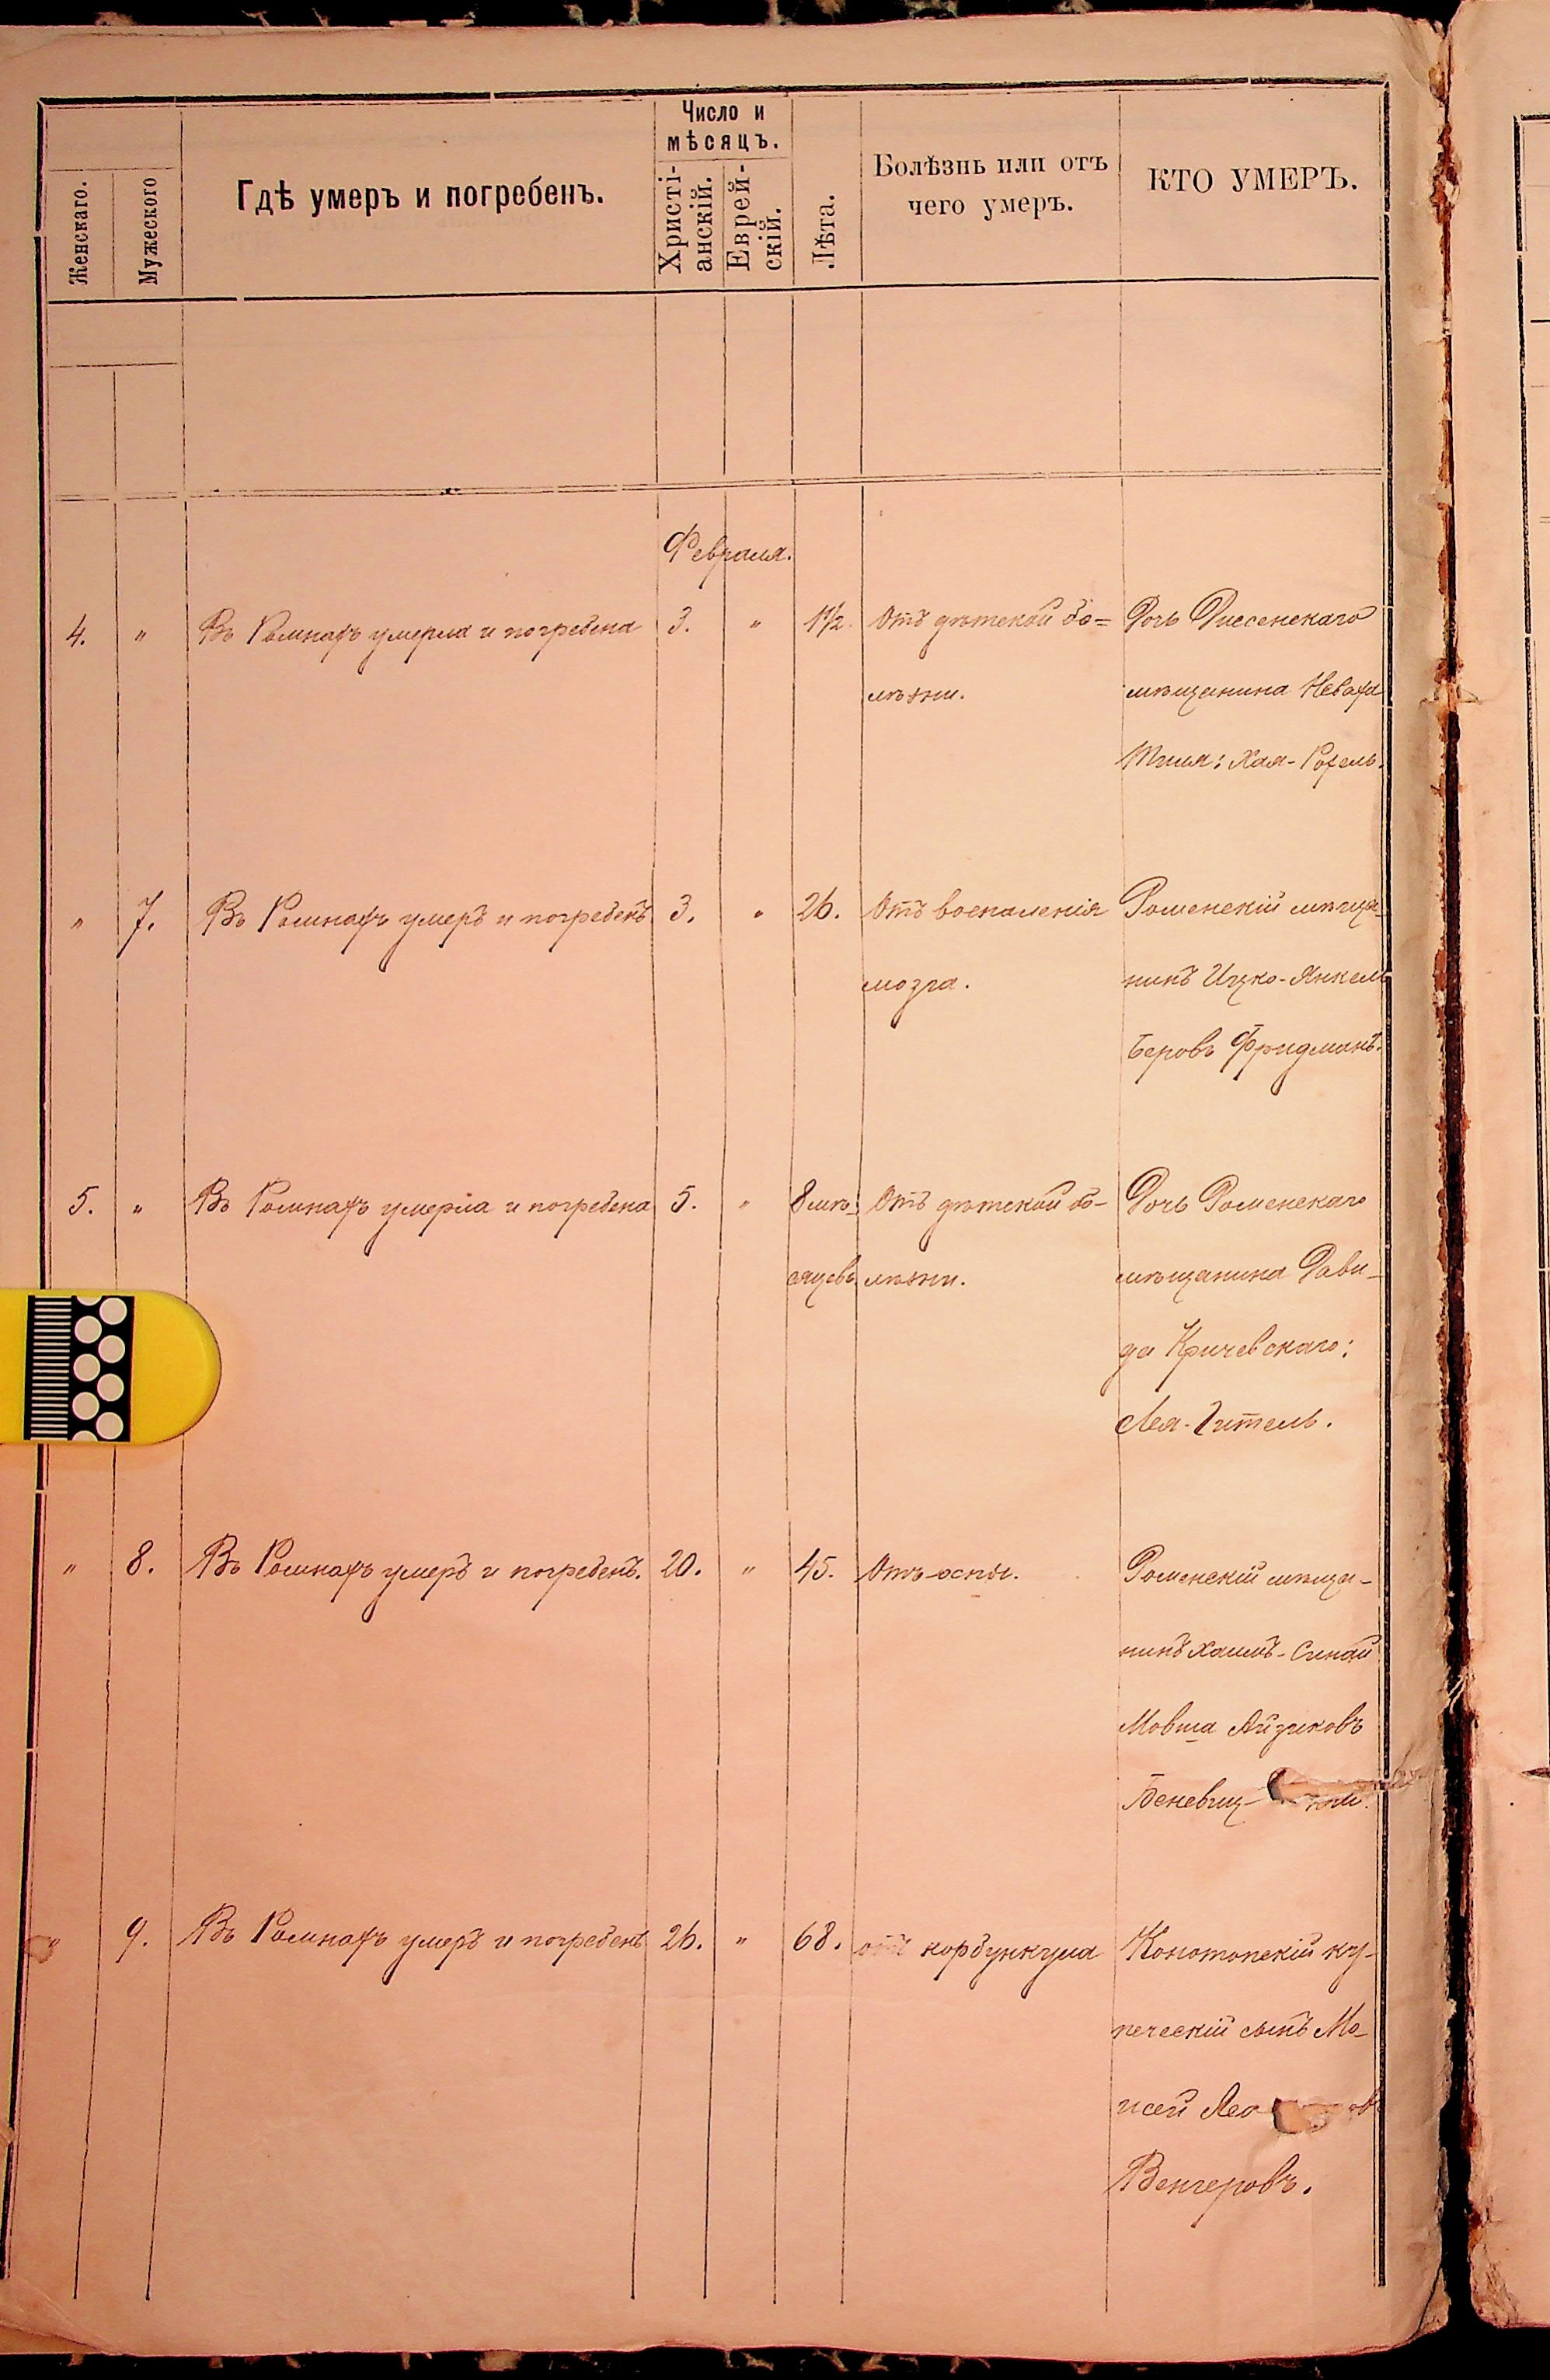 Число и
мѣсяцъ.
Женскаго.
Мужескаго
Гдѣ умеръ и погребенъ.
Христі-
анскій.
Еврей-
скій.
Лѣта.
Болѣзнь или отъ
чего умеръ.
КТО УМЕРЪ.
Февраля.
4. " Въ Ромнахъ умерла и погребена 3. " 1½. Отъ дѣтской бо= Дочь Диссенскаго
лѣзни. мѣщанина Неваха
Хая-Рохель.
" 7. Въ Ромнахъ умеръ и погребенъ 3. " 26. Отъ воспаленія Роменскій мѣща-
мозга. нинъ Ицко-Янкель
Беровъ Фридманъ.
5. " Въ Ромнахъ умерла и погребена 5. " 8 мѣ- Отъ дѣтской бо- Дочь Роменскаго
сяцевъ лѣзни. мѣщанина Дави-
да Кричевскаго:
Лея-Гитель.
" 8. Въ Ромнахъ умеръ и погребенъ. 20. " 45. Отъ оспы. Роменскій мѣща-
нинъ Хаимъ-Синай
Мовша Айзиковъ
" 9. Въ Ромнахъ умеръ и погребенъ 26. " 68. отъ корбункула Конотопскій ку-
печескій сынъ Мо-
исей
Венгеровъ.